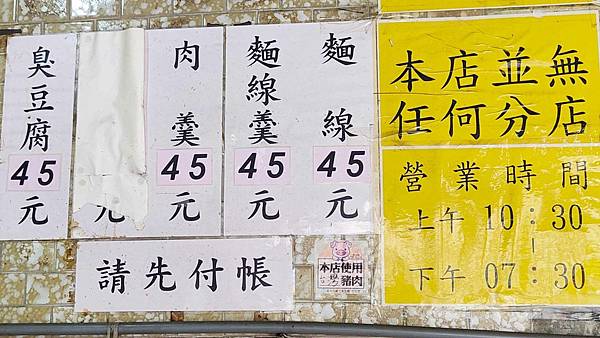 臭豆腐
45
元
元
肉羹
45
元
麵線羹
45
元
麵線
45
元
請先付帳
本店使用
豬肉
本店並無
任何分店
營業時間
上午 10:30
|
下午 07:30